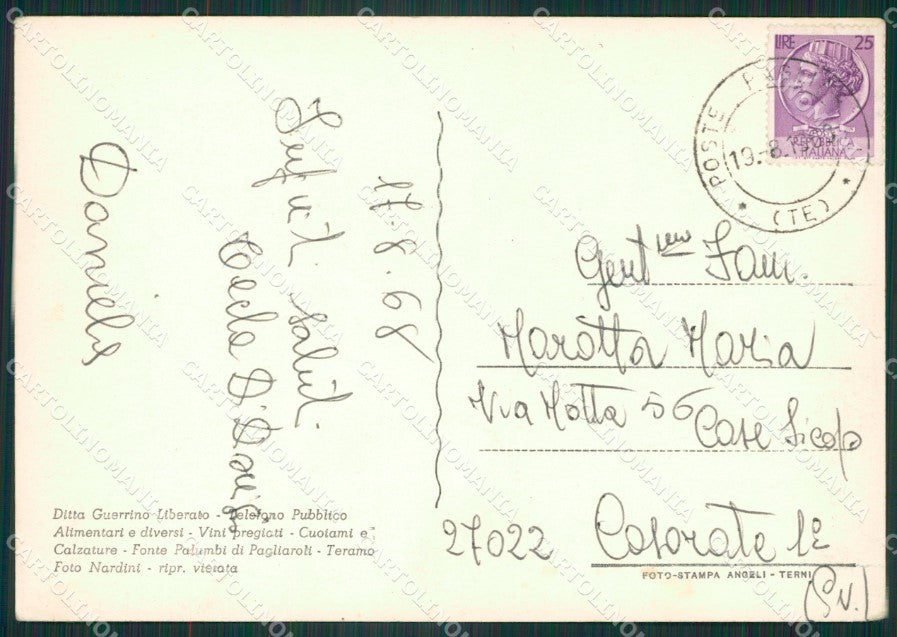 17.8.68
Saluti
Daniela
Ditta Guerrino Liberato - Telefono Pubblico
Alimentari e diversi - Vini pregiati - Cuoiami e
Calzature - Fonte Palumbi di Pagliaroli - Teramo
Foto Nardini - ripr. vietata
LIRE 25
REPVBBLICA
ITALIANA
POSTE
19.8.19
(TE)
Gent.ma Fam.
Marotta Maria
Via Motta 56
Case Sicofo
27022 Casorate 1º
(PV.)
FOTO-STAMPA ANGELI - TERNI
CARTOLINOMANIA